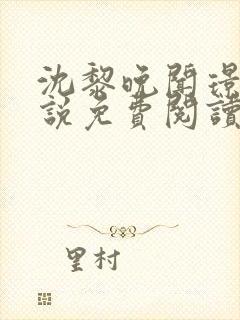 沈黎晚聞璟
說免費閱讀
里村